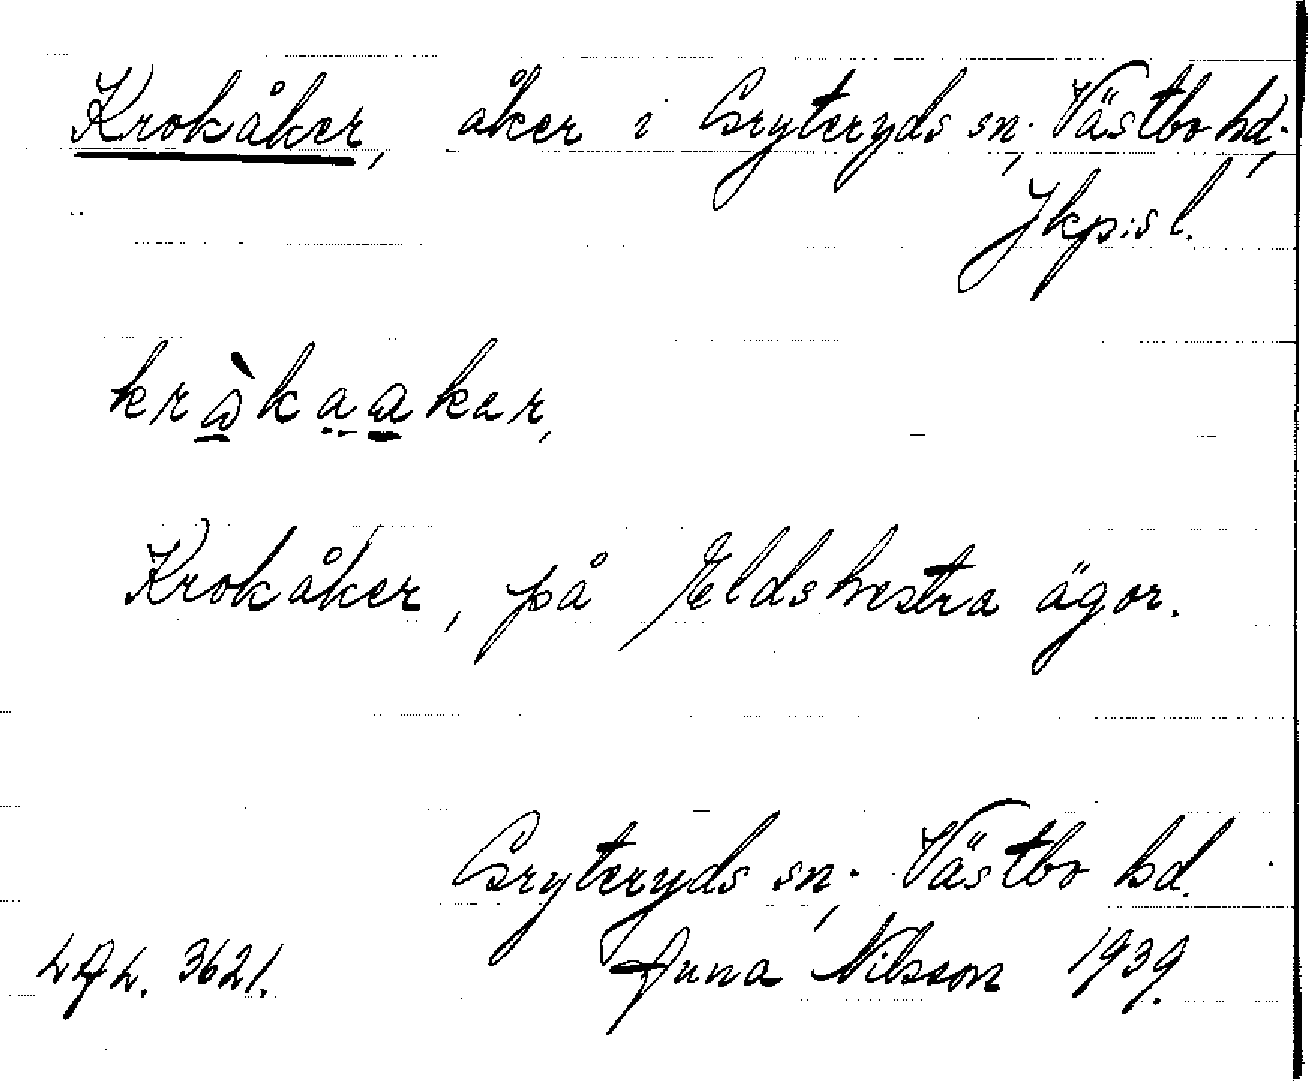 Krokåker, åker i Gryteryds sn, Västbo hd,
Jkp:s l.
kròkaakar,
Krokåker, på Eldshestra ägor.
Gryteryds sn, Västbo hd.
Anna Nilsson 1939.
LAL. 3621.